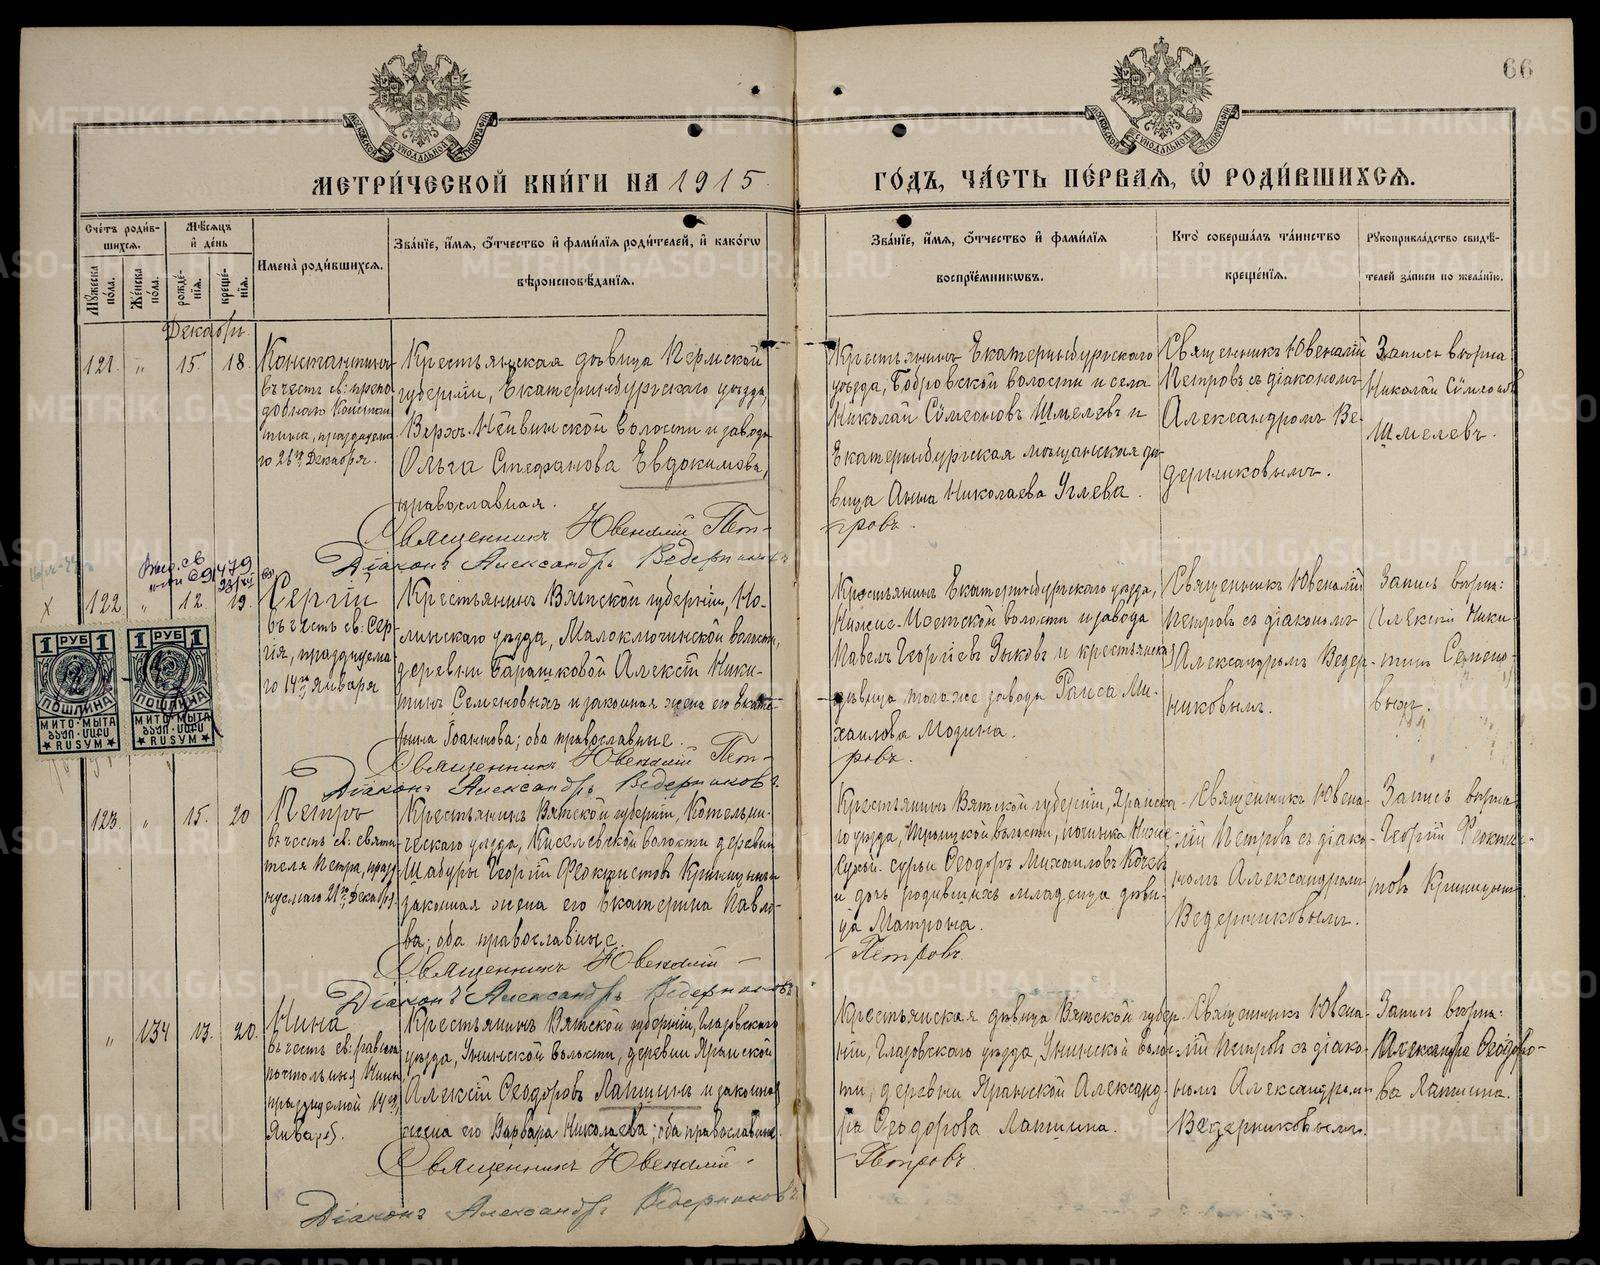 66
МЕТРИ́ЧЕСКОЙ КНИ́ГИ НА 1915
ГО́ДЪ, ЧА́СТЬ ПЕ́РВАѦ, Ѿ РОДИ́ВШИХСѦ.
Сче́тъ роди́в-
шихсѧ.
Мꙋ́жеска по́ла.
Же́нска по́ла.
Мѣ́сѧцъ и де́нь
рожде́-нїѧ.
креще́-нїѧ.
Имена̀ роди́вшихсѧ.
Зва́нїе, и́мѧ, ѻ҆́тчество и фами́лїѧ роди́телей, и како́гѡ
вѣроисповѣ́данїѧ.
Зва́нїе, и́мѧ, ѻ҆́тчество и фами́лїѧ
воспрїе́мникѡвъ.
Кто̀ соверша́лъ та́инство
креще́нїѧ.
Рꙋкоприкла́дство свидѣ́-
телей за́писи по жела́нїю.
Декабрь.
121. „ 15. 18.
Константинъ
въ честь св: препо-
добнаго Констан-
тина, празднуема-
го 26го Декабря.
Крестьянская дѣвица Пермской
губерніи, Екатеринбургскаго уѣзда,
Верхъ-Нейвинской волости и завода
Ольга Стефанова Евдокимова,
православная.
Священникъ Ювеналій Пет-
ровъ.
Діаконъ Александръ Ведерниковъ
Крестьянинъ Екатеринбургскаго
уѣзда, Бобровской волости и села
Николай Сѵмеоновъ Шмелевъ и
Екатеринбургская мѣщанская дѣ-
вица Анна Николаева Углева.
Священникъ Ювеналій
Петровъ съ діакономъ
Александромъ Ве-
дерниковымъ.
Запись вѣрна
Николай Сѵмеоновъ
Шмелевъ.
х 122 „ 12. 19.
Сергій
въ честь св: Сер-
гія, празднуема-
го 14го Января
Крестьянинъ Вятской губерніи, Но-
линскаго уѣзда, Малокмочинской волости,
деревни Барашковой Алексій Ники-
тинъ Семеновыхъ и законная жена его Екате-
рина Іоаннова; оба православные.
Священникъ Ювеналій Пет-
ровъ.
Діаконъ Александръ Ведерниковъ
Крестьянинъ Екатеринбургскаго уѣзда,
Нижне-Исетской волости и завода
Павелъ Георгіевъ Зыковъ и крестьянская
дѣвица того же завода Раиса Ми-
хаилова Мозина.
Священникъ Ювеналій
Петровъ съ діакономъ
Александромъ Ведер-
никовымъ.
Запись вѣрна:
Алексій Ники-
тинъ Семено-
выхъ.
1 РУБ 1
ПОШЛИНА
МИТО · МЫТА
RUSYM
1 РУБ 1
ПОШЛИНА
МИТО · МЫТА
RUSYM
123. „ 15. 20
Петръ
въ честь св: святи-
теля Петра, празд-
нуемаго 21го Декабря.
Крестьянинъ Вятской губерніи, Котельни-
ческаго уѣзда, Киселевской волости деревни
Шабуры Георгій Феоктистовъ Криницынъ и
законная жена его Екатерина Павло-
ва; оба православные.
Священникъ Ювеналій
Петровъ
Діаконъ Александръ Ведерниковъ
Крестьянинъ Вятской губерніи, Яранска-
го уѣзда, волости, починка Ниже
Ѳеодоръ Михаиловъ
и дочь родившихъ младенца дѣви-
ца Матрона.
Священникъ Ювена-
лій Петровъ съ діако-
номъ Александромъ
Ведерниковымъ.
Запись вѣрна
Георгій Феоктис-
товъ Криницынъ
„ 134 13. 20.
Нина
въ честь св: равноа-
постольныя Нины
празднуемой 14го
Января.
Крестьянинъ Вятской губерніи, Глазовскаго
уѣзда, Унинской волости, деревни Яранской
Алексій Ѳеодоровъ Лапшинъ и законная
жена его Варвара Николаева; оба православные.
Священникъ Ювеналій
Петровъ
Діаконъ Александръ Ведерниковъ
Крестьянская дѣвица Вятской губер-
ніи, Глазовскаго уѣзда, Унинской волос-
ти, деревни Яранской Александ-
ра Ѳеодорова Лапшина.
Священникъ Ювена-
лій Петровъ съ діако-
номъ Александромъ
Ведерниковымъ.
Запись вѣрна:
Александра Ѳеодоро-
ва Лапшина.
METRIKI.GASO-URAL.RU